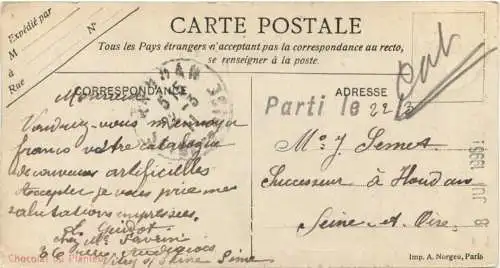 Expédié par
M
à
Rue
N°
CARTE POSTALE
Tous les Pays étrangers n'acceptant pas la correspondance au recto,
se renseigner à la poste.
CORRESPONDANCE
ADRESSE
Cat
Parti le 22/3
Monsieur
Voudriez-vous m'envoyer
franco votre catalogue
de couveuses artificielles
Accepter je vous prie mes
salutations empressées.
L. Guidot
chez Mr
36
Vitry s/ Seine Seine
Mr J Semet
Successeur à Houdan
Seine-et-Oise
Chocolat du Planteur
Imp. A. Norgeu, Paris
8 JUI 1991